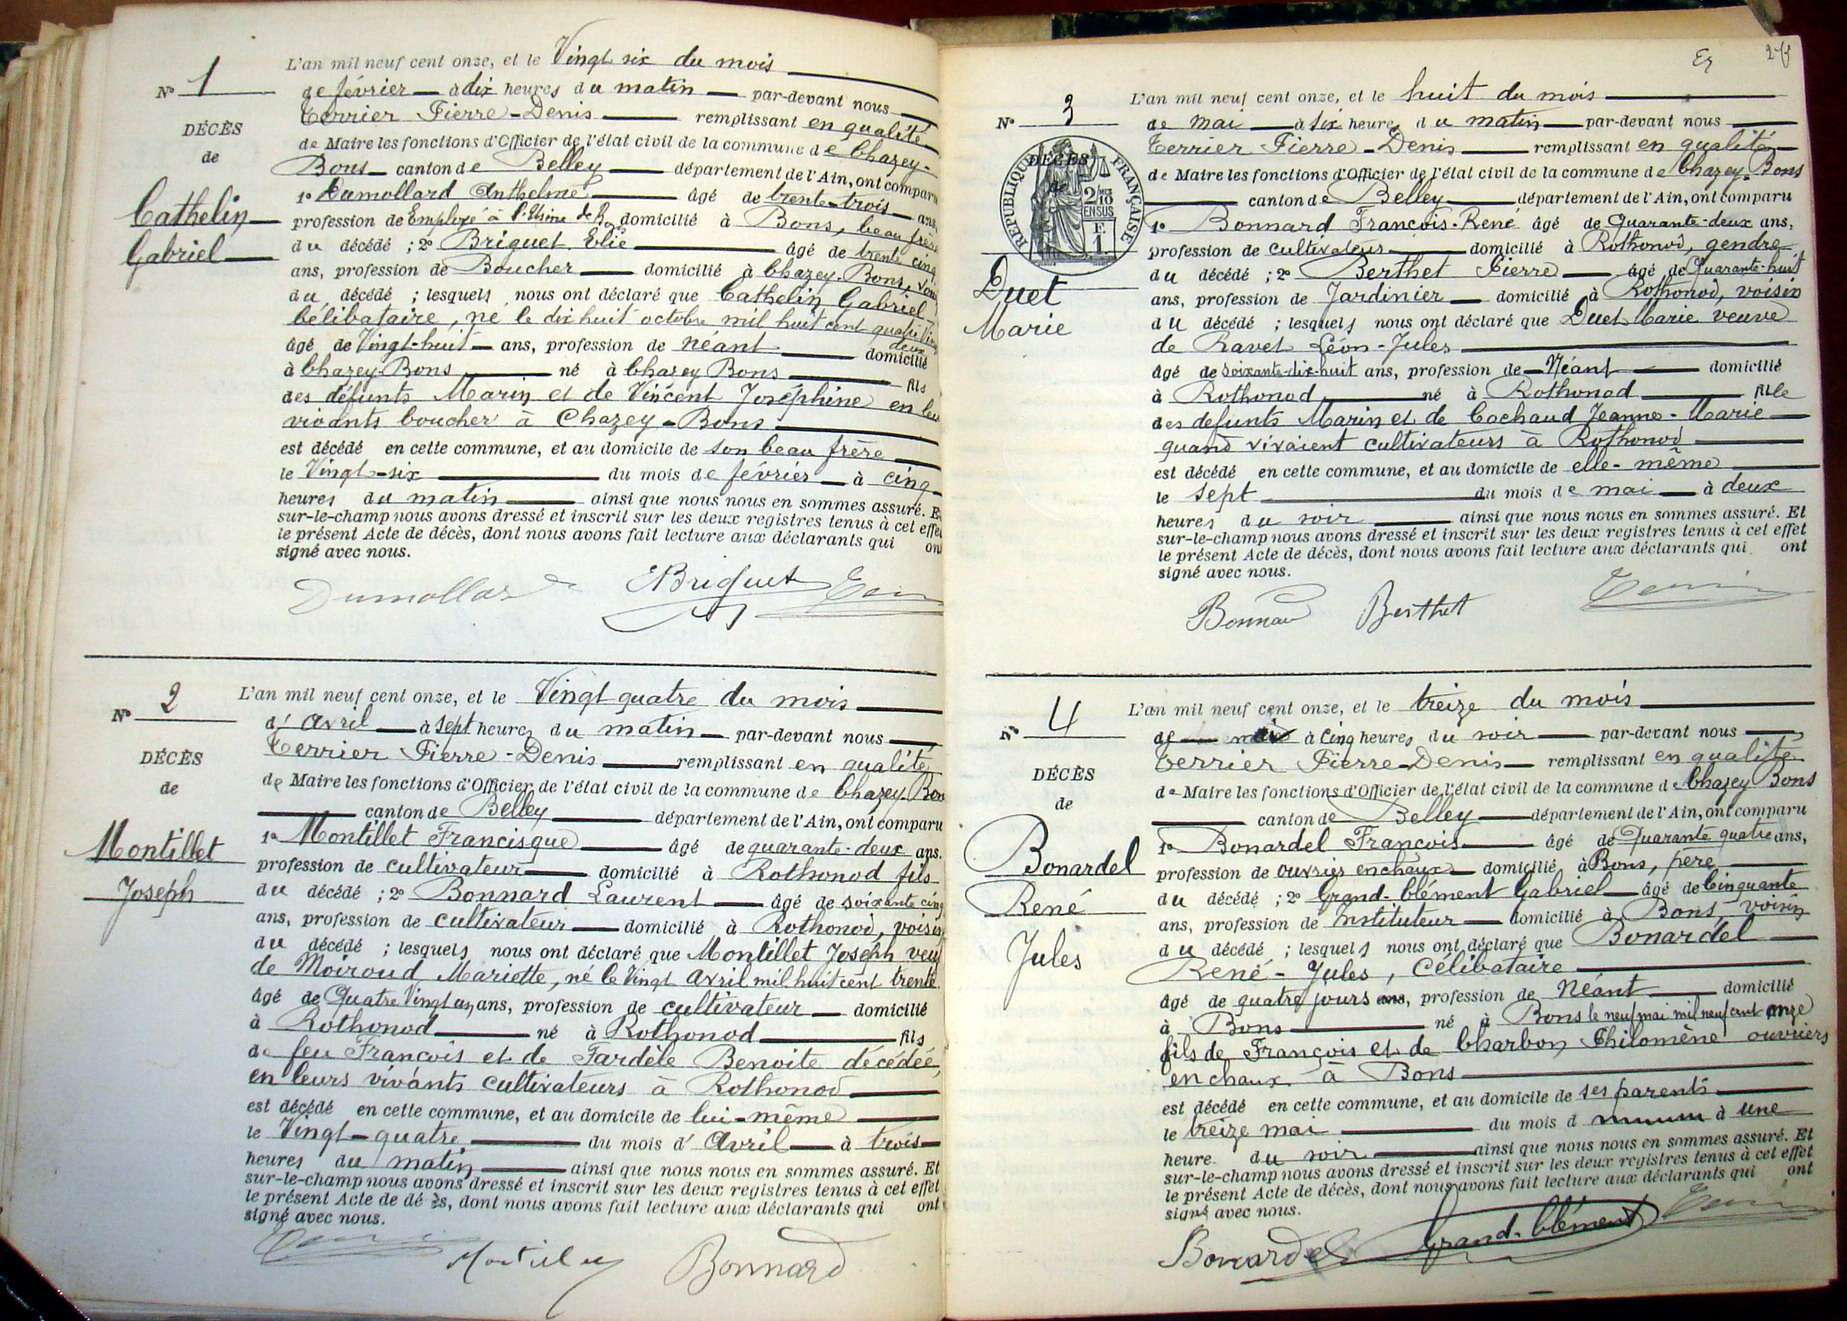 N° 1
DÉCÈS
de
Cathelin
Gabriel
L'an mil neuf cent onze, et le Vingt six du mois
de février à dix heures du matin par-devant nous
Terrier Pierre-Denis remplissant en qualité
de Maire les fonctions d'Officier de l'état civil de la commune de Chazey-
Bons canton de Belley département de l'Ain, ont comparu
1° Dumollard Anthelme âgé de trente-trois ans,
profession de Employé à l'Usine de B. domicilié à Bons, beau frère
du décédé ; 2° Briquet Elie âgé de trente cinq
ans, profession de Boucher domicilié à Chazey-Bons,
du décédé ; lesquels nous ont déclaré que Cathelin Gabriel
Célibataire, né le dix huit octobre mil huit cent quatre Vingt
deux
âgé de Vingt-huit ans, profession de néant domicilié
à Chazey-Bons né à Chazey Bons fils
des défunts Marin et de Vincent Joséphine en leur
vivants boucher à Chazey-Bons
est décédé en cette commune, et au domicile de son beau frère
le Vingt-six du mois de février à cinq
heures du matin ainsi que nous nous en sommes assuré. Et
sur-le-champ nous avons dressé et inscrit sur les deux registres tenus à cet effet
le présent Acte de décès, dont nous avons fait lecture aux déclarants qui ont
signé avec nous.
Dumollard EBriquet Terrier
N° 2
DÉCÈS
de
Montillet
Joseph
L'an mil neuf cent onze, et le Vingt quatre du mois
d'avril à sept heures du matin par-devant nous
Terrier Pierre-Denis remplissant en qualité
de Maire les fonctions d'Officier de l'état civil de la commune de Chazey Bons
canton de Belley département de l'Ain, ont comparu
1° Montillet Francisque âgé de quarante-deux ans.
profession de cultivateur domicilié à Rothonod fils
du décédé ; 2° Bonnard Laurent âgé de soixante cinq
ans, profession de cultivateur domicilié à Rothonod, voisin
du décédé ; lesquels nous ont déclaré que Montillet Joseph veuf
de Moiroud Mariette, né le Vingt avril mil huit cent trente
âgé de Quatre Vingt un ans, profession de cultivateur domicilié
à Rothonod né à Rothonod fils
de feu François et de Tardèle Benoite décédée,
en leurs vivants cultivateurs à Rothonod
est décédé en cette commune, et au domicile de lui-même
le Vingt-quatre du mois d'avril à trois
heures du matin ainsi que nous nous en sommes assuré. Et
sur-le-champ nous avons dressé et inscrit sur les deux registres tenus à cet effet
le présent Acte de décès, dont nous avons fait lecture aux déclarants qui ont
signé avec nous.
Terrier Montillet Bonnard
N° 3
DÉCÈS
de
RÉPUBLIQUE FRANÇAISE
2/10 EN SUS
F. 1
Duet
Marie
L'an mil neuf cent onze, et le huit du mois
de mai à six heures du matin par-devant nous
Terrier Pierre-Denis remplissant en qualité
de Maire les fonctions d'Officier de l'état civil de la commune de Chazey-Bons
canton de Belley département de l'Ain, ont comparu
1° Bonnard François-René âgé de Quarante-deux ans,
profession de cultivateur domicilié à Rothonod, gendre
du décédé ; 2° Berthet Pierre âgé de Quarante-huit
ans, profession de Jardinier domicilié à Rothonod, voisin
du décédé ; lesquels nous ont déclaré que Duet Marie veuve
de Ravet Léon-Jules
âgé de soixante-dix-huit ans, profession de Néant domicilié
à Rothonod né à Rothonod fille
des défunts Marin et de Cochaud Jeanne-Marie
quand vivaient cultivateurs à Rothonod
est décédé en cette commune, et au domicile de elle-même
le sept du mois de mai à deux
heures du soir ainsi que nous nous en sommes assuré. Et
sur-le-champ nous avons dressé et inscrit sur les deux registres tenus à cet effet
le présent Acte de décès, dont nous avons fait lecture aux déclarants qui ont
signé avec nous.
Bonnard Berthet Terrier
N° 4
DÉCÈS
de
Bonardel
René
Jules
L'an mil neuf cent onze, et le treize du mois
de mai à cinq heures du soir par-devant nous
Terrier Pierre-Denis remplissant en qualité
de Maire les fonctions d'Officier de l'état civil de la commune de Chazey Bons
canton de Belley département de l'Ain, ont comparu
1° Bonardel François âgé de Quarante quatre ans,
profession de ouvrier en chaux domicilié à Bons, père
du décédé ; 2° Grand-Clément Gabriel âgé de Cinquante
ans, profession de Instituteur domicilié à Bons, voisin
du décédé ; lesquels nous ont déclaré que Bonardel
René-Jules, célibataire
âgé de quatre jours ans, profession de Néant domicilié
à Bons né à Bons le neuf mai mil neuf cent onze
fils de François et de Charbon Philomène ouvriers
en chaux à Bons
est décédé en cette commune, et au domicile de ses parents
le treize mai du mois d à une
heure du soir ainsi que nous nous en sommes assuré. Et
sur-le-champ nous avons dressé et inscrit sur les deux registres tenus à cet effet
le présent Acte de décès, dont nous avons fait lecture aux déclarants qui ont
signé avec nous.
Bonardel Grand-Clément Terrier